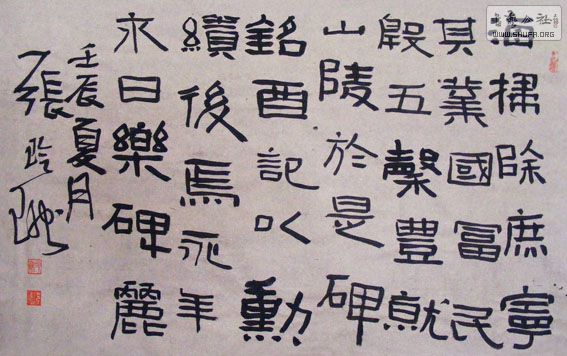 公社
WWW.SHUFA.ORG
掃除庶寧
其業國富民
殷五穀豐就
山陵於是碑
銘酉記以勳
續後焉永年
永日樂碑麗
壬辰夏月
張